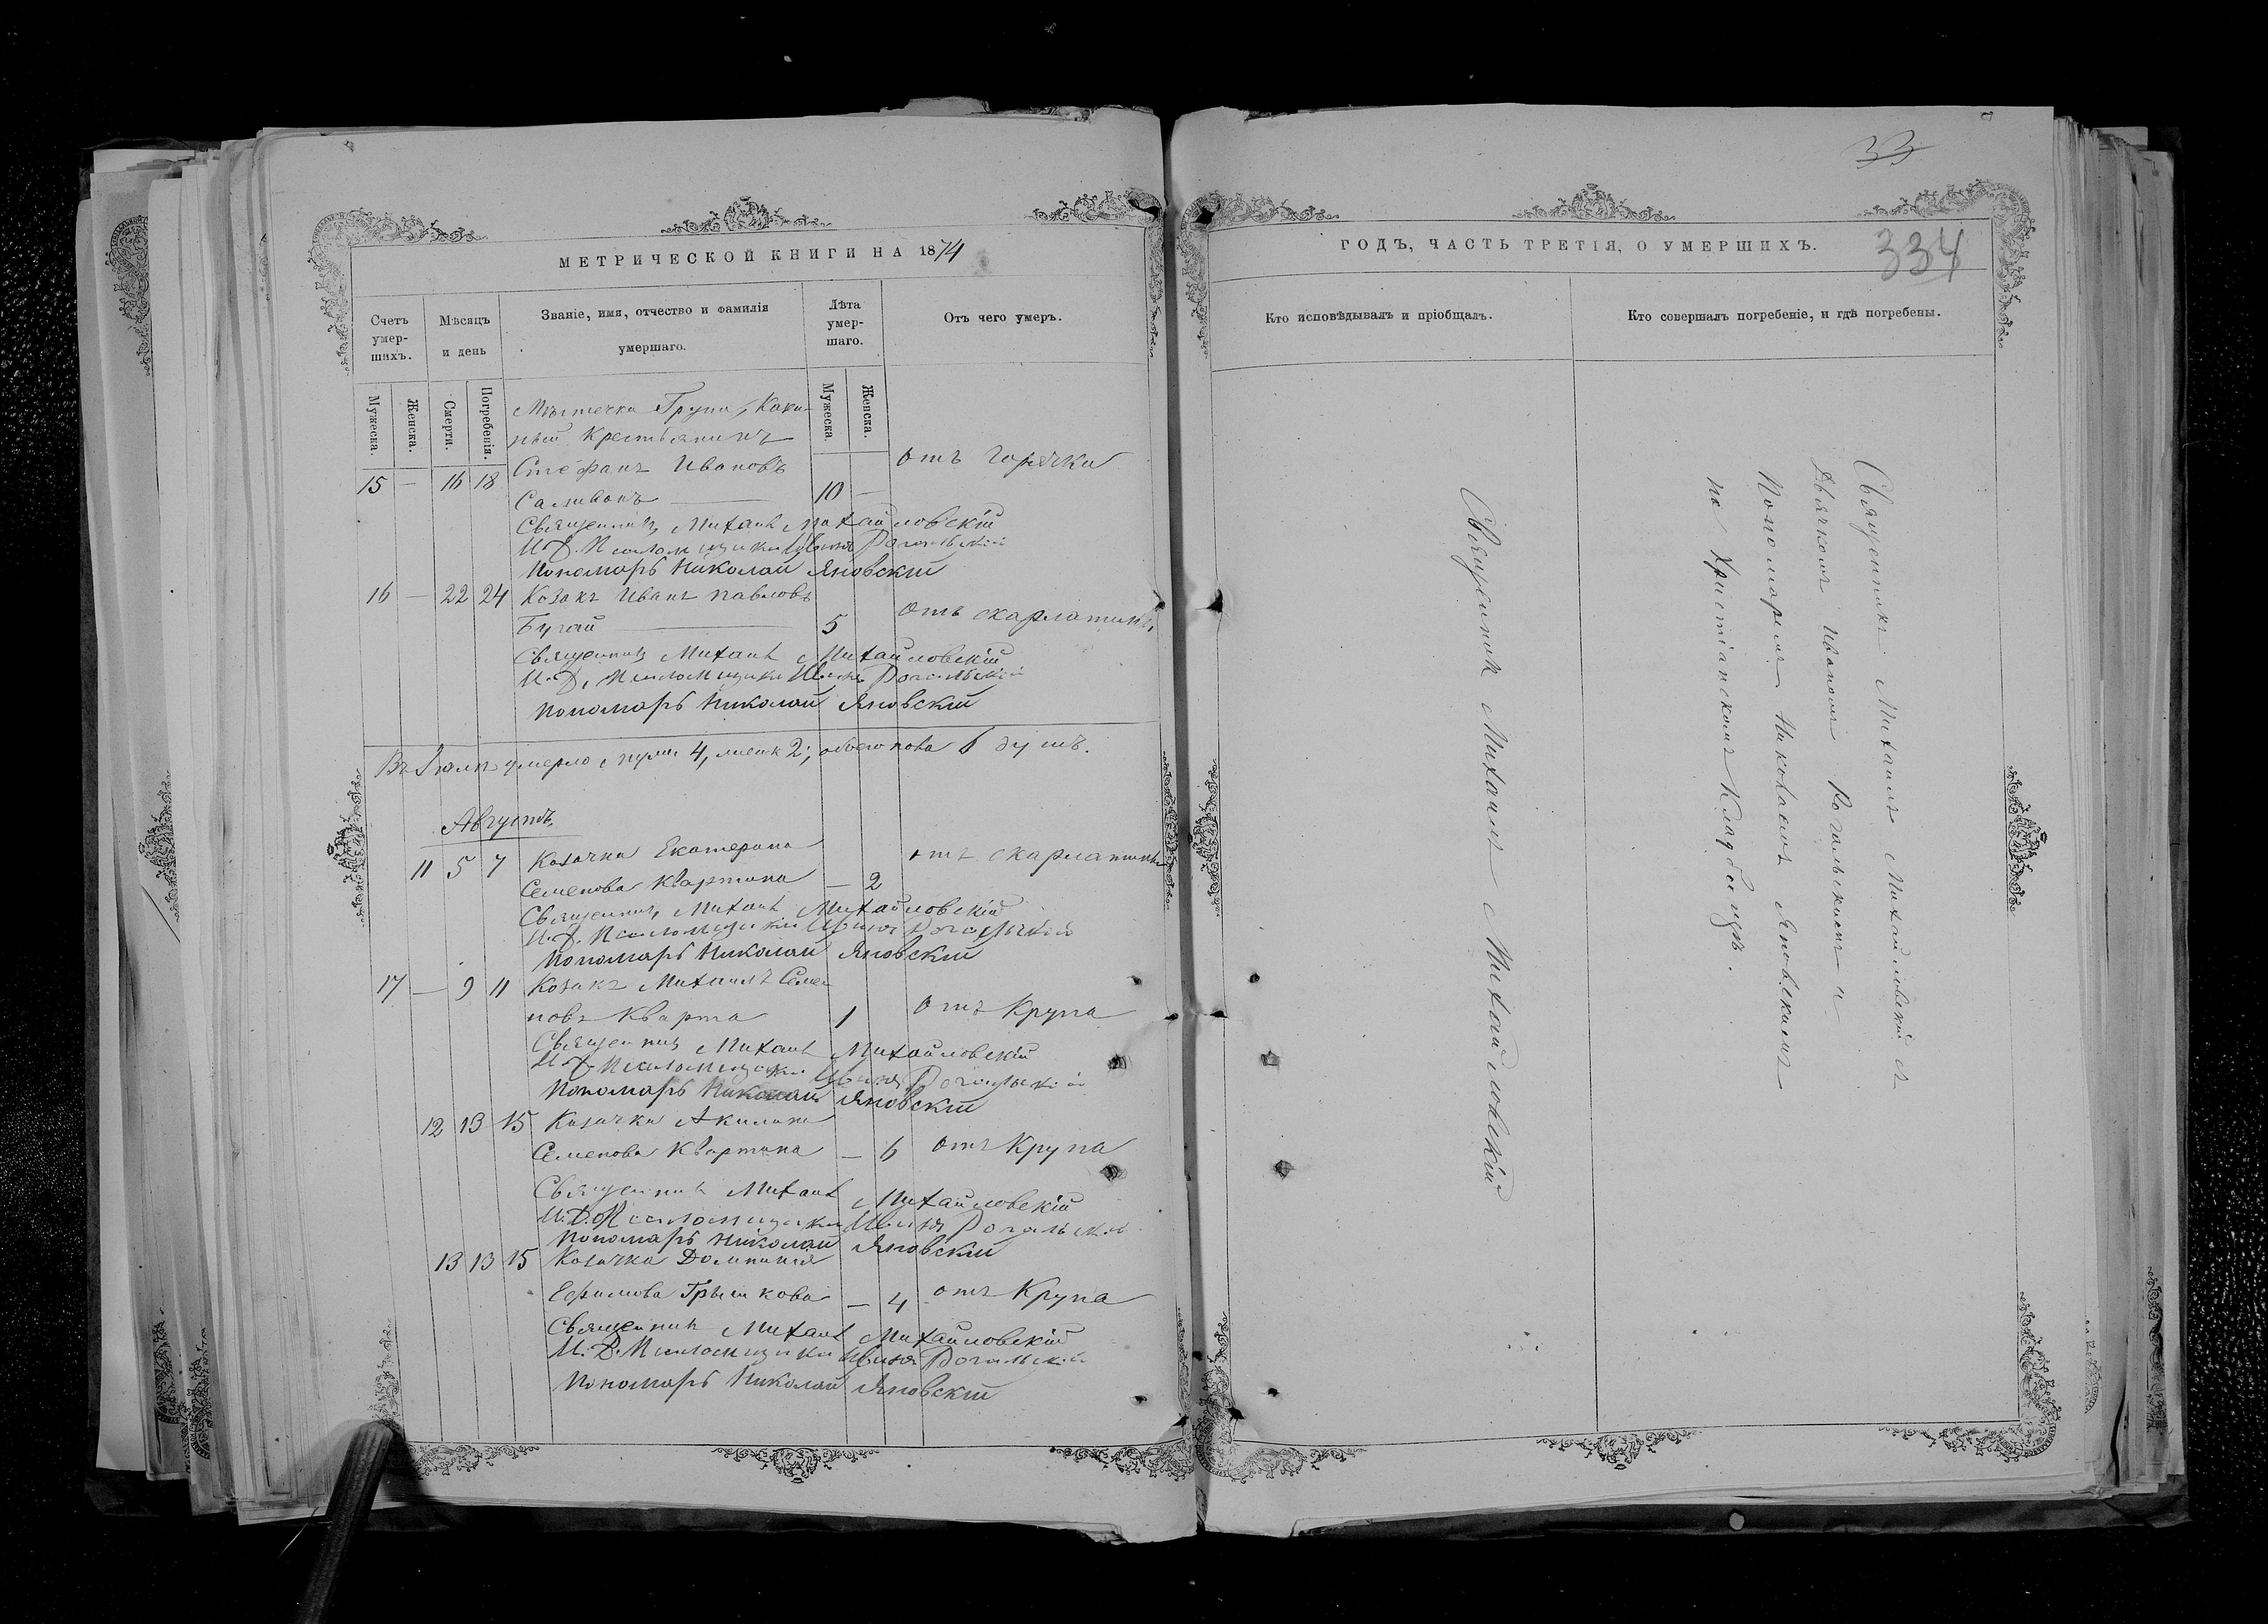 33
МЕТРИЧЕСКОЙ КНИГИ НА 1874
ГОДЪ, ЧАСТЬ ТРЕТІЯ, О УМЕРШИХЪ.
334
Счетъ умер-шихъ.
Мѣсяцъ и день
Званіе, имя, отчество и фамилія умершаго.
Лѣта умер-шаго.
Отъ чего умеръ.
Кто исповѣдывалъ и пріобщалъ.
Кто совершалъ погребеніе, и гдѣ погребены.
Мужеска.
Женска.
Смерти.
Погребенія.
Мужеска.
Женска.
крестьянинъ
15 — 16 18 Стефанъ Ивановъ отъ горячки
10 —
Священникъ Михаилъ Михайловскій
И. Д. Псаломщика Иванъ Рогальскій
Пономарь Николай Яновскій
16 — 22 24 Козакъ Иванъ Павловъ
Бугай 5 отъ скарлатины
Священникъ Михаилъ Михайловскій
И. Д. Псаломщика Иванъ Рогальскій
Пономарь Николай Яновскій
Въ Іюлѣ умерло муж. 4, женск. 2; обоего пола 6 душъ.
Августъ
11 5 7 Козачка Екатерина
Семенова Квартина — 2 отъ скарлатины
Священникъ Михаилъ Михайловскій
И. Д. Псаломщика Иванъ Рогальскій
Пономарь Николай Яновскій
17 — 9 11 Козакъ Михаилъ Семе
новъ Кварта 1 отъ Крупа
Священникъ Михаилъ Михайловскій
И. Д. Псаломщика Иванъ Рогальскій
Пономарь Николай Яновскій
12 13 15 Козачка Акилина
Семенова Квартина — 6 отъ Крупа
Священникъ Михаилъ Михайловскій
И. Д. Псаломщика Иванъ Рогальскій
Пономарь Николай Яновскій
13 13 15 Козачка Домникія
Ефимова — 4 отъ Крупа
Священникъ Михаилъ Михайловскій
И. Д. Псаломщика Иванъ Рогальскій
Пономарь Николай Яновскій
Священникъ Михаилъ Михайловскій
Священникъ Михаилъ Михайловскій съ
Дьячкомъ Иваномъ Рогальскимъ и
Пономаремъ Николаемъ Яновскимъ
на Христіанскомъ Кладбищѣ.